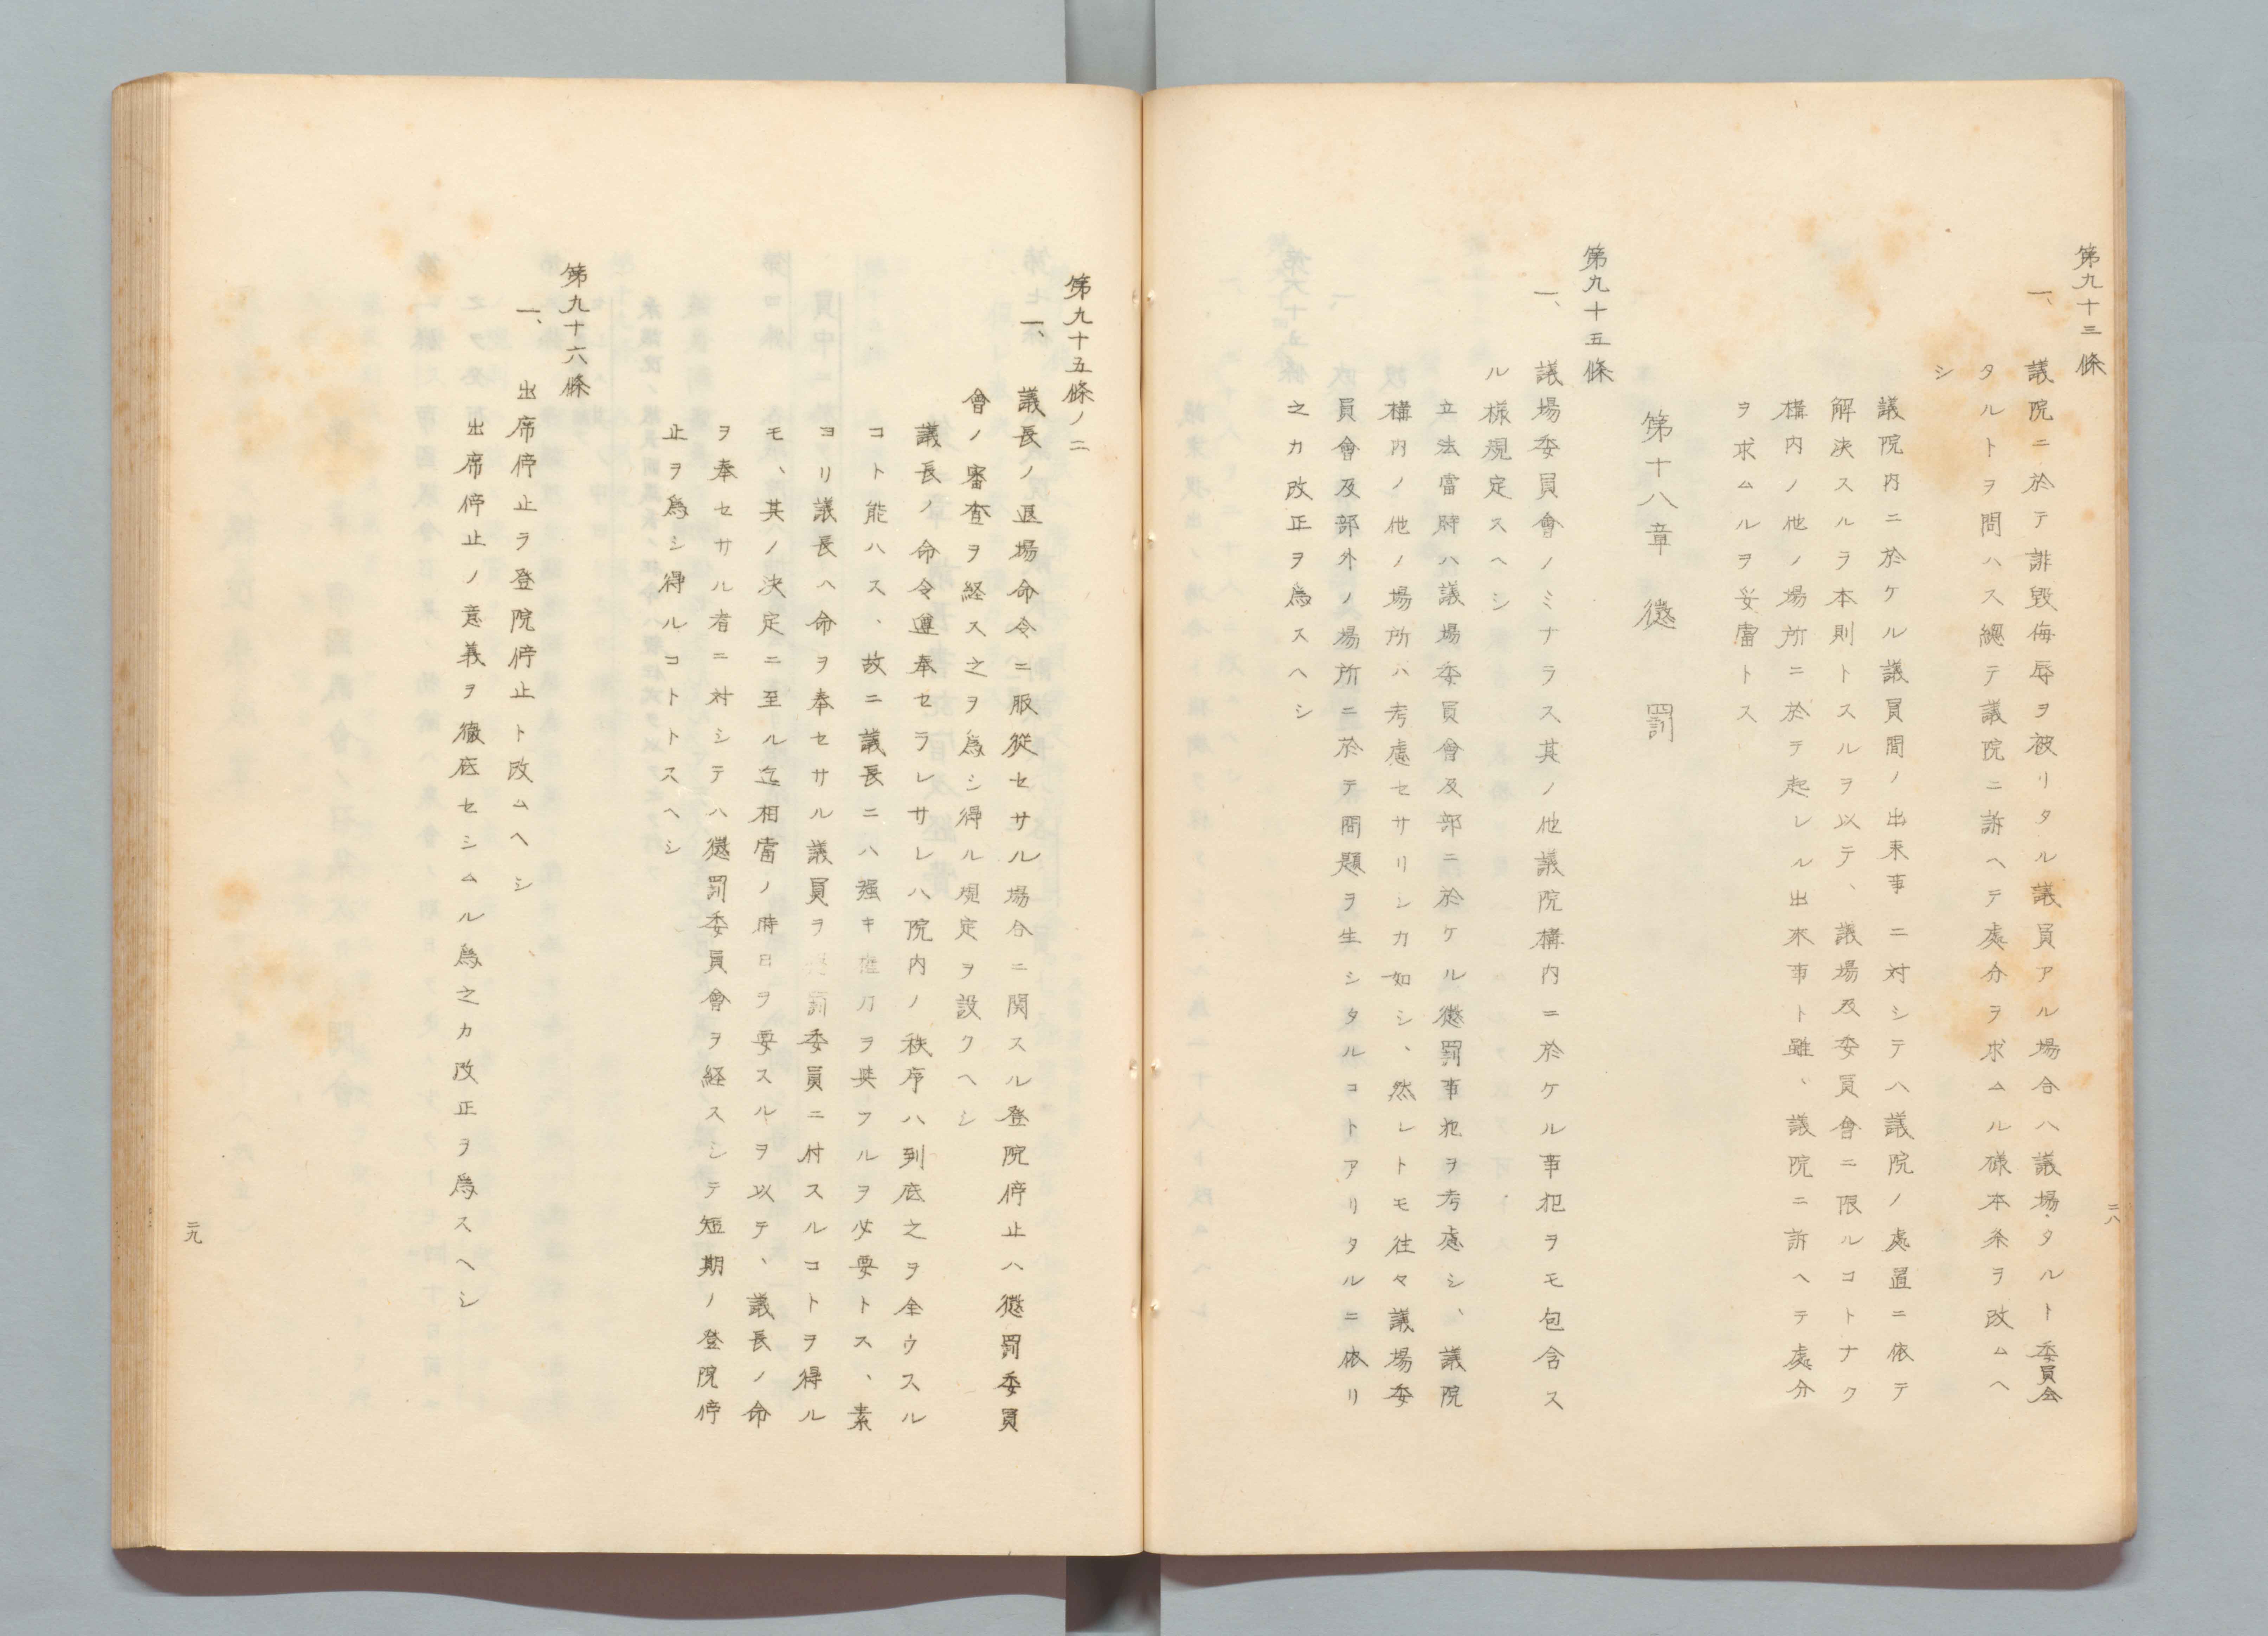 第九十三條
一、議院ニ於テ誹毀侮辱ヲ被リタル議員アル場合ハ議場タルト委員会
タルトヲ問ハス總テ議院ニ訴ヘテ處分ヲ求ムル樣本条ヲ改ムヘ
シ
議院内ニ於ケル議員間ノ出来事ニ対シテハ議院ノ處置ニ依テ
解決スルヲ本則トスルヲ以テ、議場及委員會ニ限ルコトナク
構内ノ他ノ場所ニ於テ起レル出来事ト雖、議院ニ訴ヘテ處分
ヲ求ムルヲ妥當トス
第十八章 懲罰
第九十五條
一、議場委員會ノミナラス其ノ他議院構内ニ於ケル事犯ヲモ包含ス
ル樣規定スヘシ
立法當時ハ議場委員會及部ニ於ケル懲罰事犯ヲ考慮シ、議院
構内ノ他ノ場所ハ考慮セサリシカ如シ、然レトモ往々議場委
員會及部外ノ場所ニ於テ問題ヲ生シタルコトアリタルニ依リ
之カ改正ヲ爲スヘシ
二八
第九十五條ノ二
一、議長ノ退場命令ニ服從セサル場合ニ関スル登院停止ハ懲罰委員
會ノ審査ヲ経ス之ヲ爲シ得ル規定ヲ設クヘシ
議長ノ命令遵奉セラレサレハ院内ノ秩序ハ到底之ヲ全ウスル
コト能ハス、故ニ議長ニハ强キ權力ヲ與フルヲ必要トス、素
ヨリ議長ヘ命ヲ奉セサル議員ヲ懲罰委員ニ付スルコトヲ得ル
モ、其ノ決定ニ至ル迄相當ノ時日ヲ要スルヲ以テ、議長ノ命
ヲ奉セサル者ニ対シテハ懲罰委員會ヲ経スシテ短期ノ登院停
止ヲ爲シ得ルコトトスヘシ
第九十六條
一、出席停止ヲ登院停止ト改ムヘシ
出席停止ノ意義ヲ徹底セシムル爲之カ改正ヲ爲スヘシ
二九